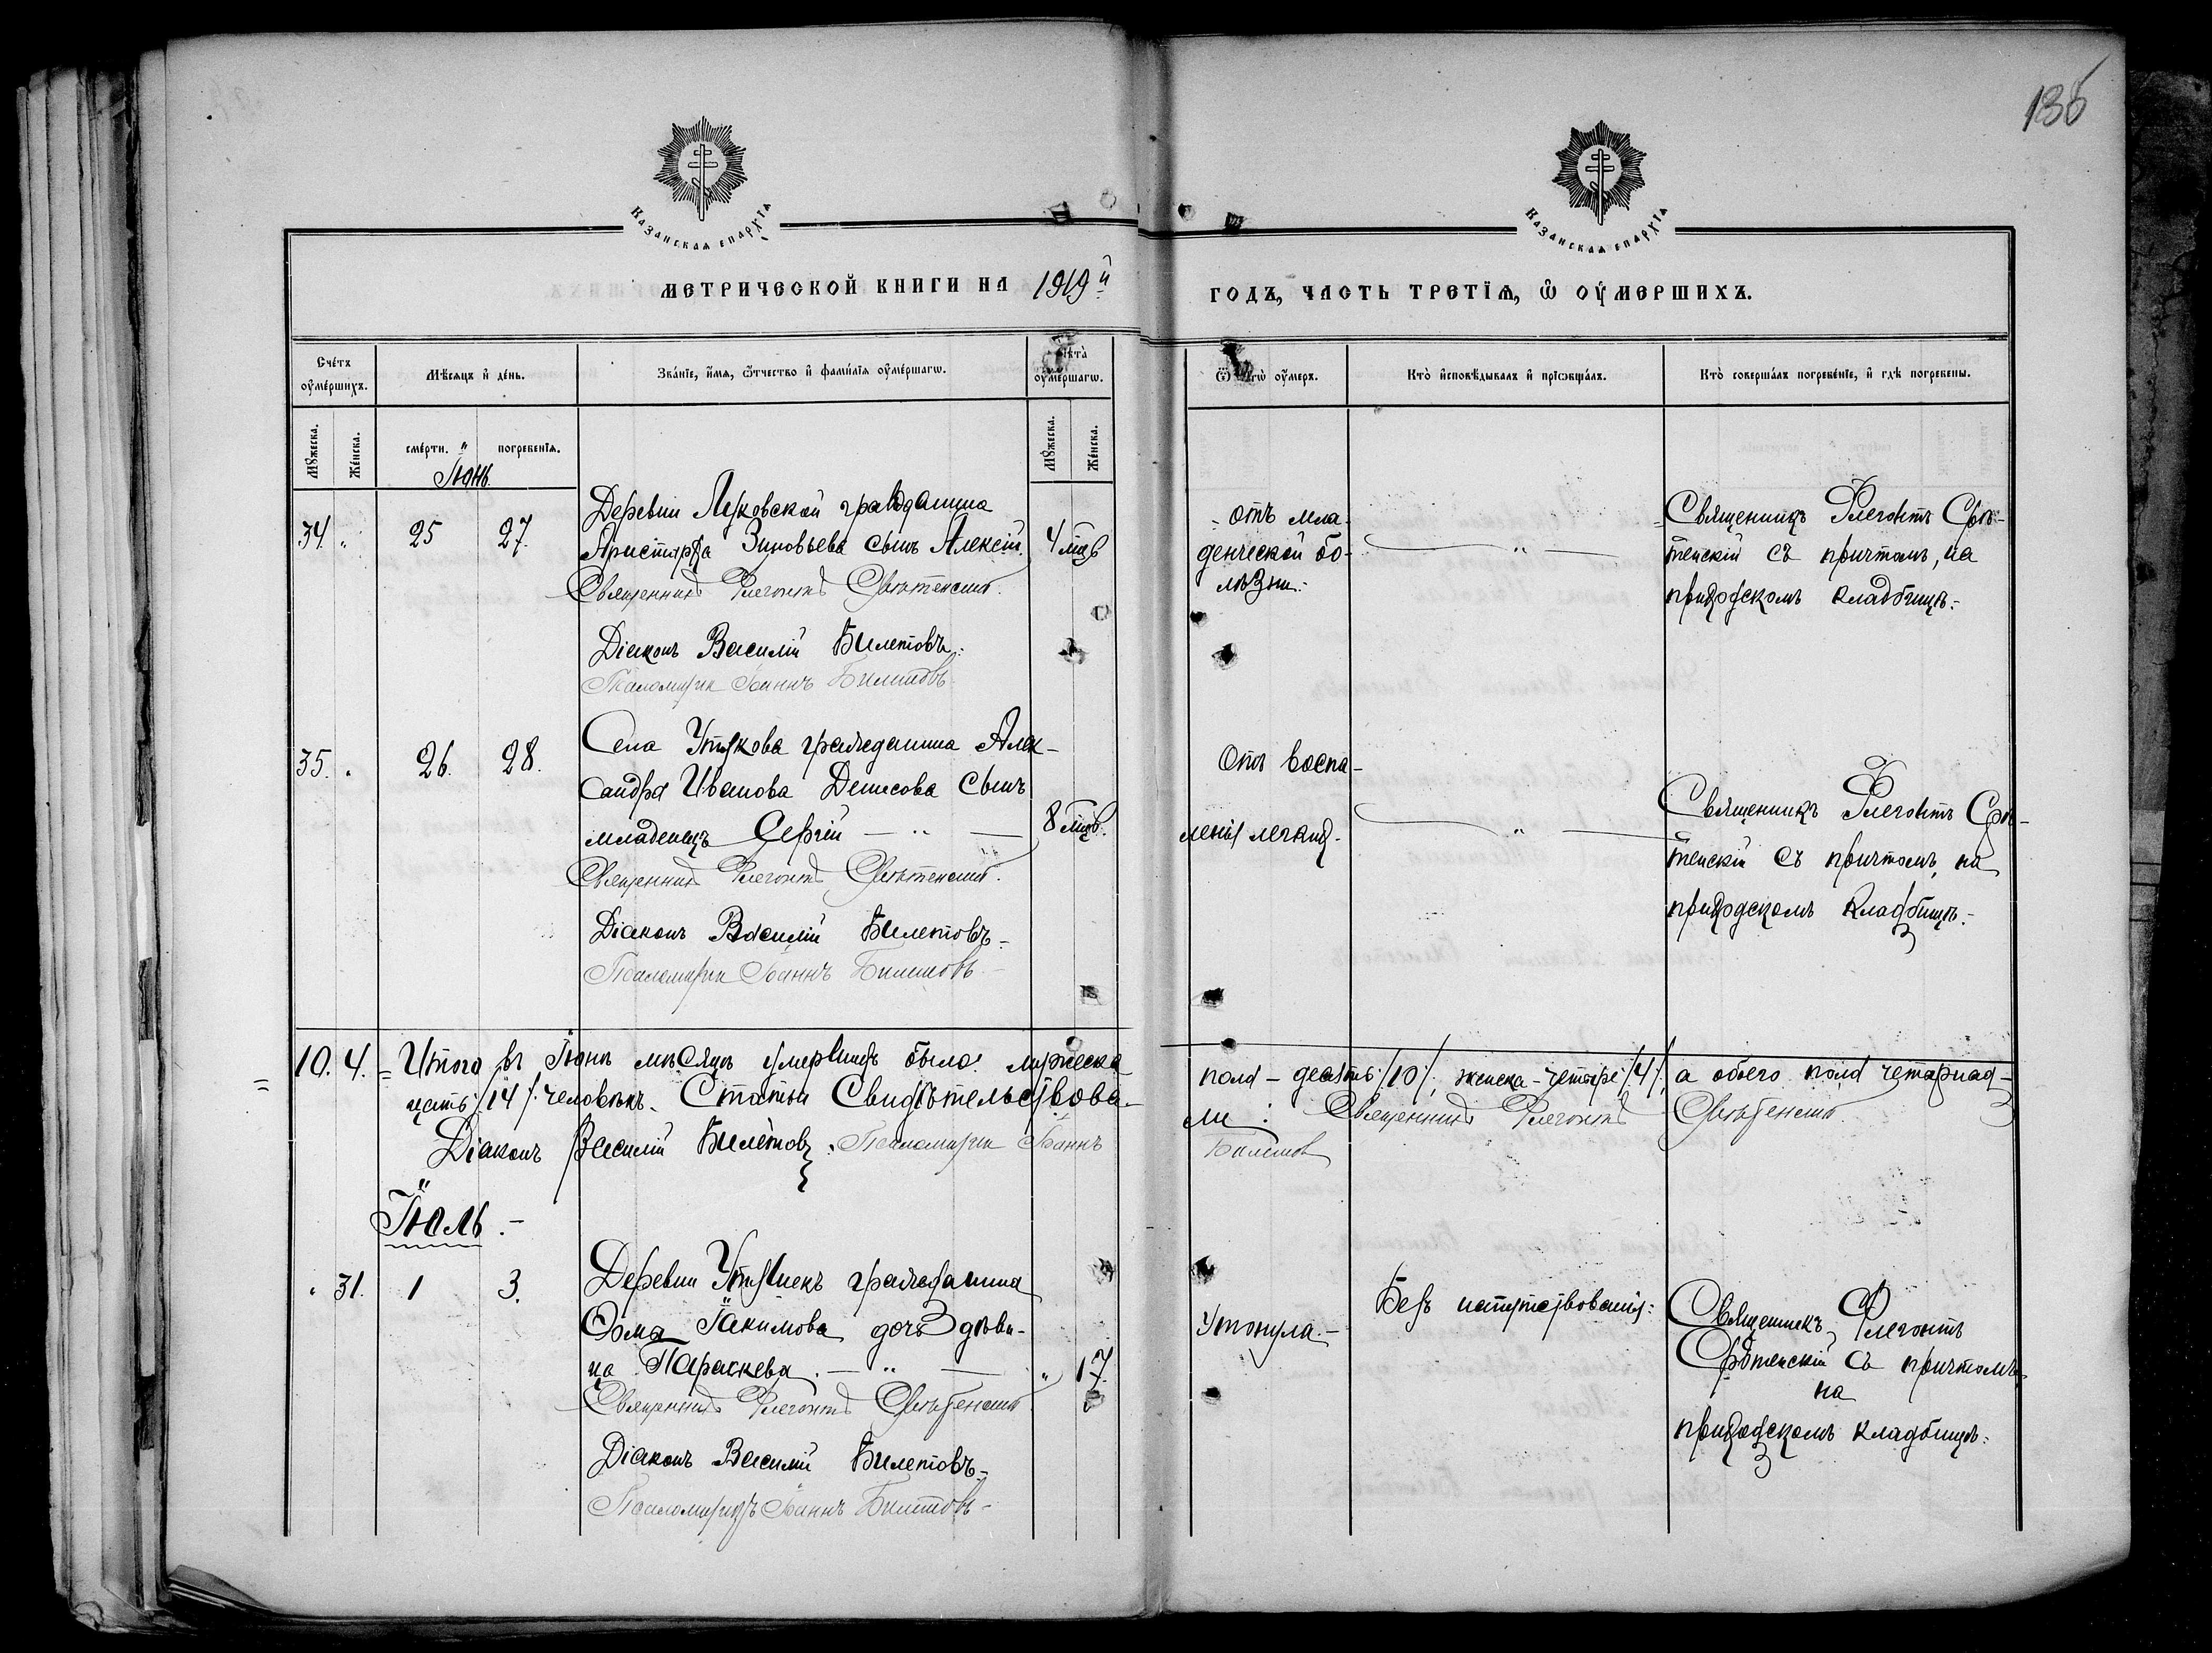 136
КАЗАНСКАЯ ЕПАРХІЯ
КАЗАНСКАЯ ЕПАРХІЯ
МЕТРИЧЕСКОЙ КНИГИ НА 1919й
ГОДЪ, ЧАСТЬ ТРЕТІЯ, Ѡ ОУМЕРШИХЪ.
Счéтъ оумéршихъ.
Мѣсяцъ и дéнь.
Звáніе, и́мя, ѻ҆́тчество и фами́лія оумéршагѡ.
лѣтà оумéршагѡ.
Ѿ чегѡ̀ оу́меръ.
Ктò и҆сповѣ́дывалъ и прїѡбщáлъ.
Ктò совершáлъ погребéніе, и гдѣ̀ погребены.
Мꙋ́жеска.
Жéнска.
смéрти.
погребенія.
Мꙋ́жеска.
Жéнска.
Іюнь
34. „ 25 27.
Деревни гражданина
Аристарха Зиновьева сынъ Алексій. 4 мцв
Священникъ Флегонтъ Срѣтенскій.
Діаконъ Василій Билетовъ.
Псаломщикъ Іоаннъ Билетовъ
отъ мла-
денческой бо-
лѣзни.
„
Священникъ Флегонтъ Срѣ-
тенскій съ причтомъ, на
приходскомъ кладбищѣ.
35. „ 26. 28.
Села Утякова гражданина Алек-
сандра Иванова Денисова сынъ
младенецъ Сергій — „ — 8 мцв.
Священникъ Флегонтъ Срѣтенскій.
Діаконъ Василій Билетовъ.
Псаломщикъ Іоаннъ Билетовъ
Отъ воспа-
ленія легкихъ.
„
Священникъ Флегонтъ Срѣ-
тенскій съ причтомъ, на
приходскомъ кладбищѣ.
10. 4. = Итого въ Іюнѣ мѣсяцѣ умершихъ было: мужеска
пола - десять /10/. женска - четыре /4/. а обоего пола четырнад-
цать /14/. человѣкъ. Статьи Свидѣтельствова-
ли: Священникъ Флегонтъ Срѣтенскій
Діаконъ Василій Билетовъ. Псаломщикъ Іоаннъ
Билетовъ
Іюль.-
„ 31. 1 3.
Деревни гражданина
Ѳомы Іакимова дочь дѣви-
ца Параскева. — „ — „ 17.
Священникъ Флегонтъ Срѣтенскій
Діаконъ Василій Билетовъ.
Псаломщикъ Іоаннъ Билетовъ
Утонула.-
Безъ напутствованія:
Священникъ Флегонтъ
Срѣтенскій съ причтомъ,
на
приходскомъ кладбищѣ.